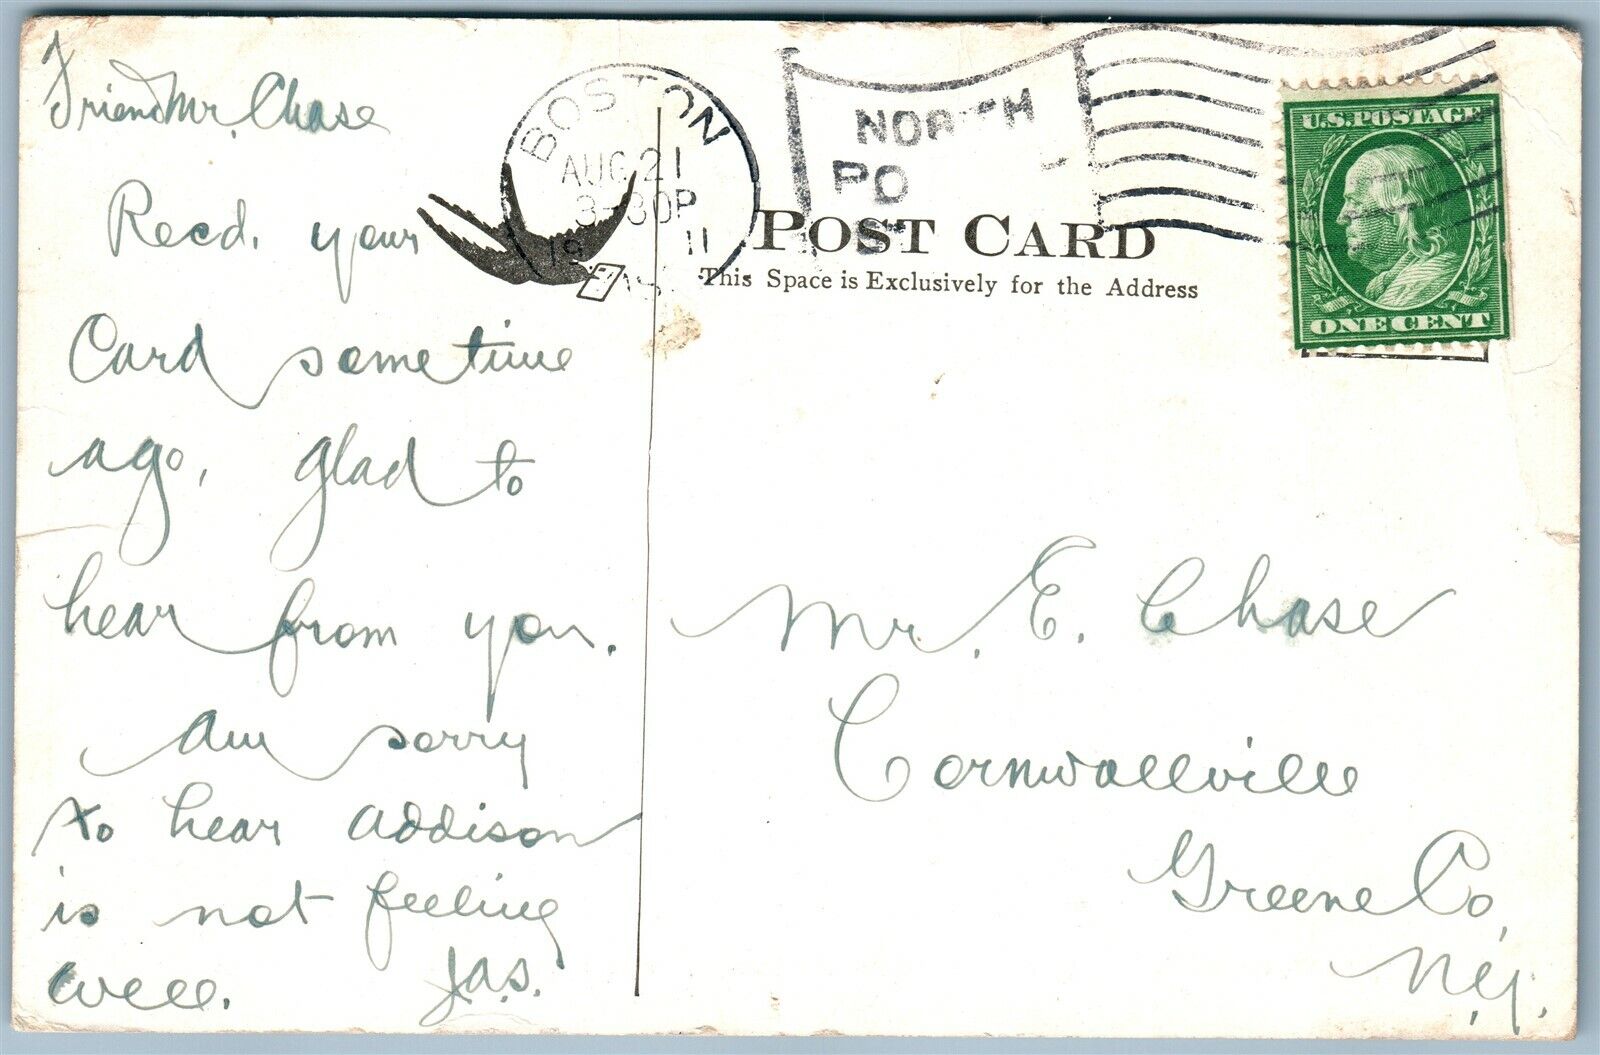 Friend Mr. Chase
Recd. your
Card sometime
ago, glad to
hear from you.
Am sorry
to hear Addison
is not feeling
well. Jas.
BOSTON
AUG 21
3-30P
19 11
NORTH
PO
POST CARD
This Space is Exclusively for the Address
U.S. POSTAGE
ONE CENT
Mr. E. Chase
Cornwallville
Greene Co,
N.Y.